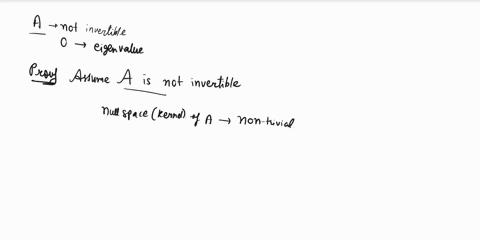 A → not invertible
0 → eigenvalue
Proof Assume A is not invertible
Null space (kernel) of A → non-trivial